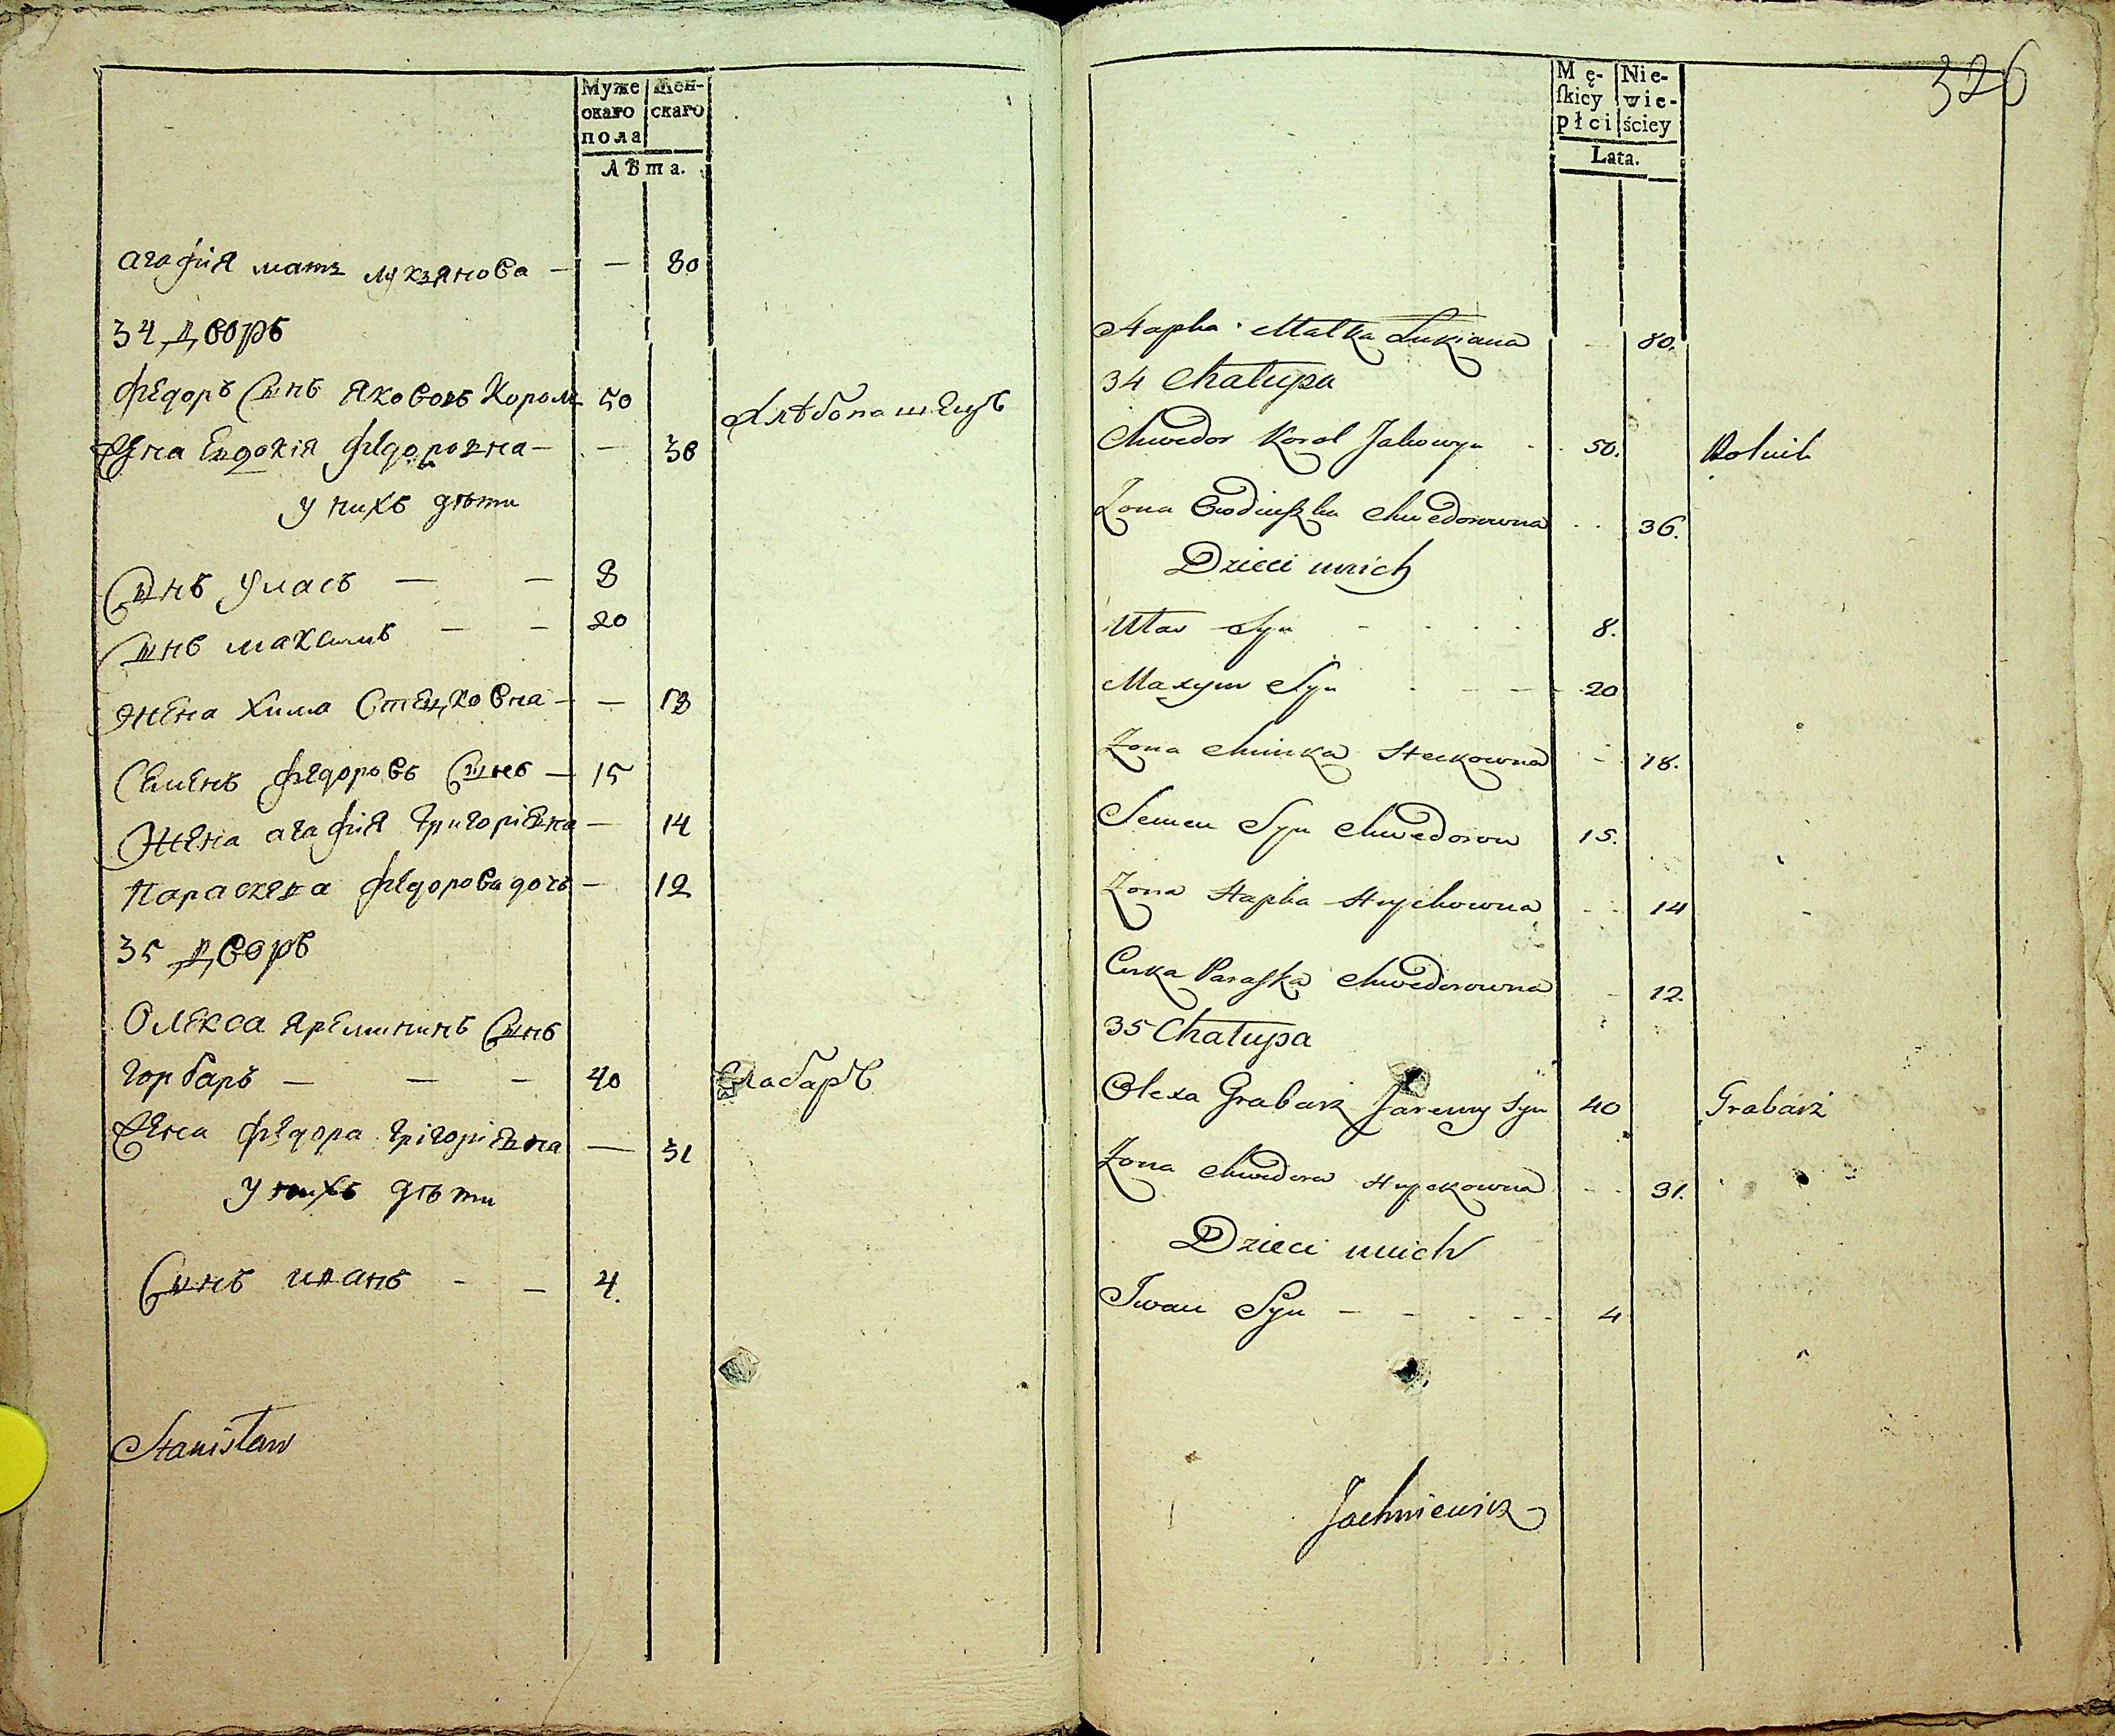 Муже
скаго
пола
Жен-
скаго
Лѣта.
агафия мать лукянова — — 80
34 дворъ
Федоръ Сынъ Якововъ Король 50 Хлѣбопашецъ
Жена Евдокія Федоровна — — 36
у нихъ дѣти
Сынъ Уласъ — — 8
Сынъ максимъ — — 20
жена Хима Стецковна — — 18
Семенъ федоровъ Сынъ — 15
Жена агафия Григоріевна — 14
Параскева федорова дочь — 12
35 дворъ
Олекса яремининъ Сынъ
горбаръ — — — 40
Жена федора Грігоріевна — 31
у нихъ дѣти
Сынъ иванъ - — 4.
Stanisław
326
Mę-
skiey
płci
Nie-
wie-
ściey
Lata.
Hapka Matka Lukiana 80.
34 Chałupa
Chwedor Korol Jakowyn 50. Rolnik
Zona Chwedorowna 36.
Dzieci unich
Ułas Syn 8.
Maxym Syn 20
Zona Chimka Steckowna 18.
Semen Syn Chwedorow 15.
Zona Hapka Hrychowna 14
Curka Paraska Chwedorowna 12.
35 Chałupa
Olexa Grabarz Jaremy Syn 40 Grabarz
Zona Chwedora Hryckowna 31.
Dzieci unich
Iwan Syn — 4
Jachniewicz